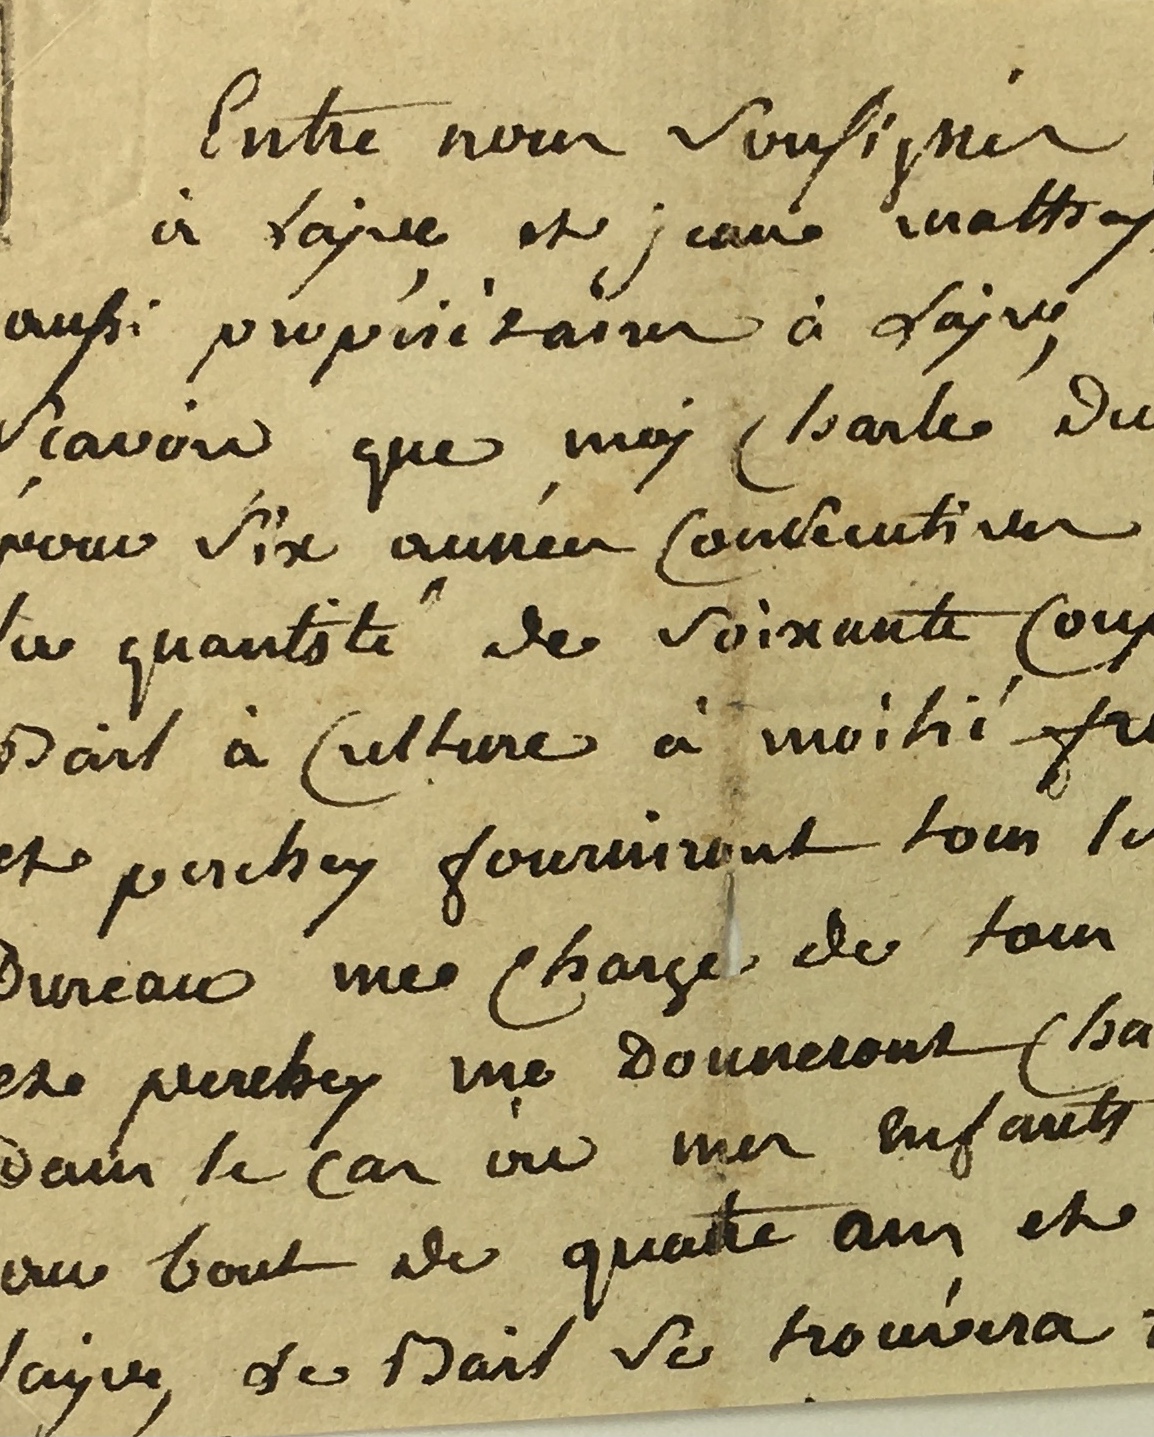 Entre nous Soussignés
à Layré et jean mattey
aussi propriétaires à Layré,
Scavoir que moy Charle Du
pour Six années Consecutives
la quantité de Soixante Coup
Bail à Culture à moitié fru
et perchey fourniront tous le
Dureau me Charge de tous
et perchey me Donneront Cha
Dans le Cas où mes Enfants
au bout de quatre ans et
Le Bail Se trouvera